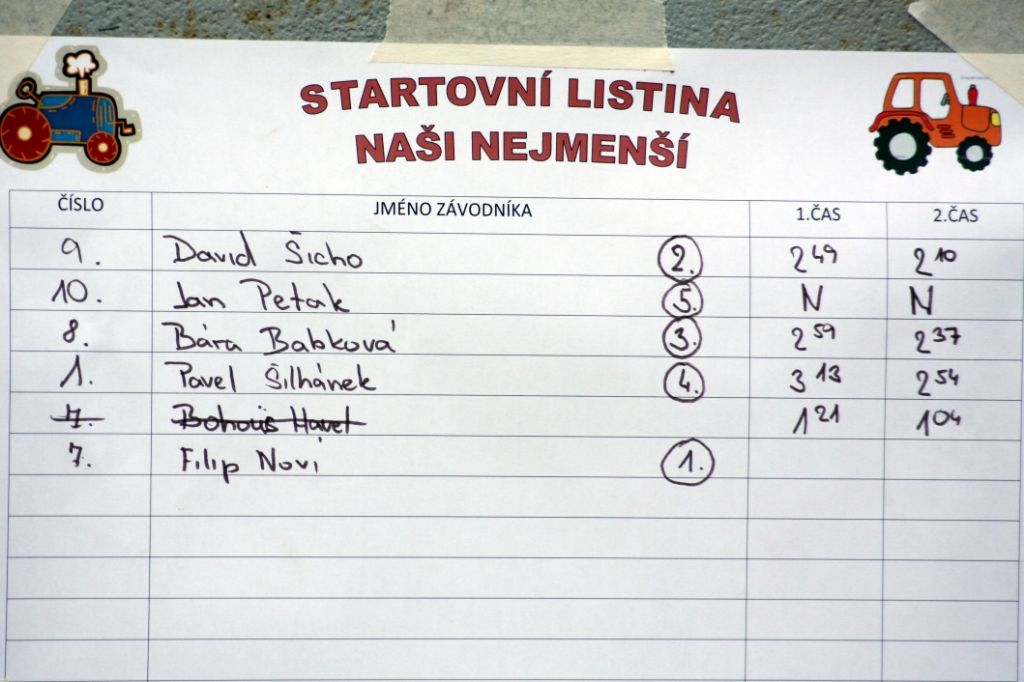 STARTOVNÍ LISTINA
NAŠI NEJMENŠÍ
ČÍSLO JMÉNO ZÁVODNÍKA 1.ČAS 2.ČAS
9. David Šicho 2. 2 49 2 10
10. Jan Petak 5. N N
8. Bára Babková 3. 2 59 2 37
1. Pavel Šilhánek 4. 3 13 2 54
7. Bohouš Havel 1 21 1 04
7. Filip Noví 1.